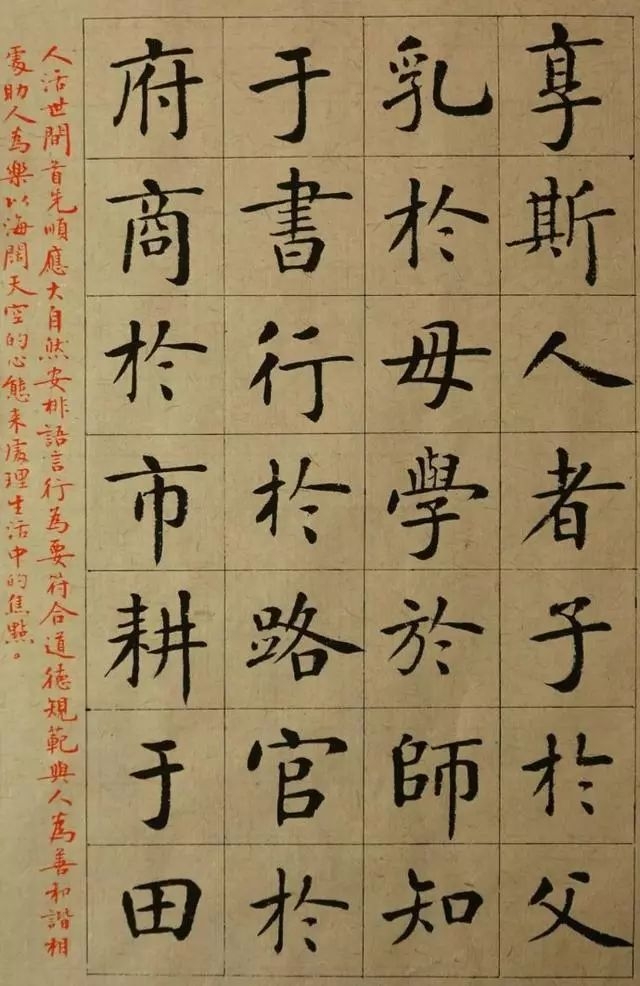 享斯人者子於父
乳於母學於師知
于書行於路官於
府商於市耕于田
人活世間首先順應大自然安排語言行為要符合道德規範與人為善和諧相
處助人為樂以海闊天空的心態来處理生活中的焦點。